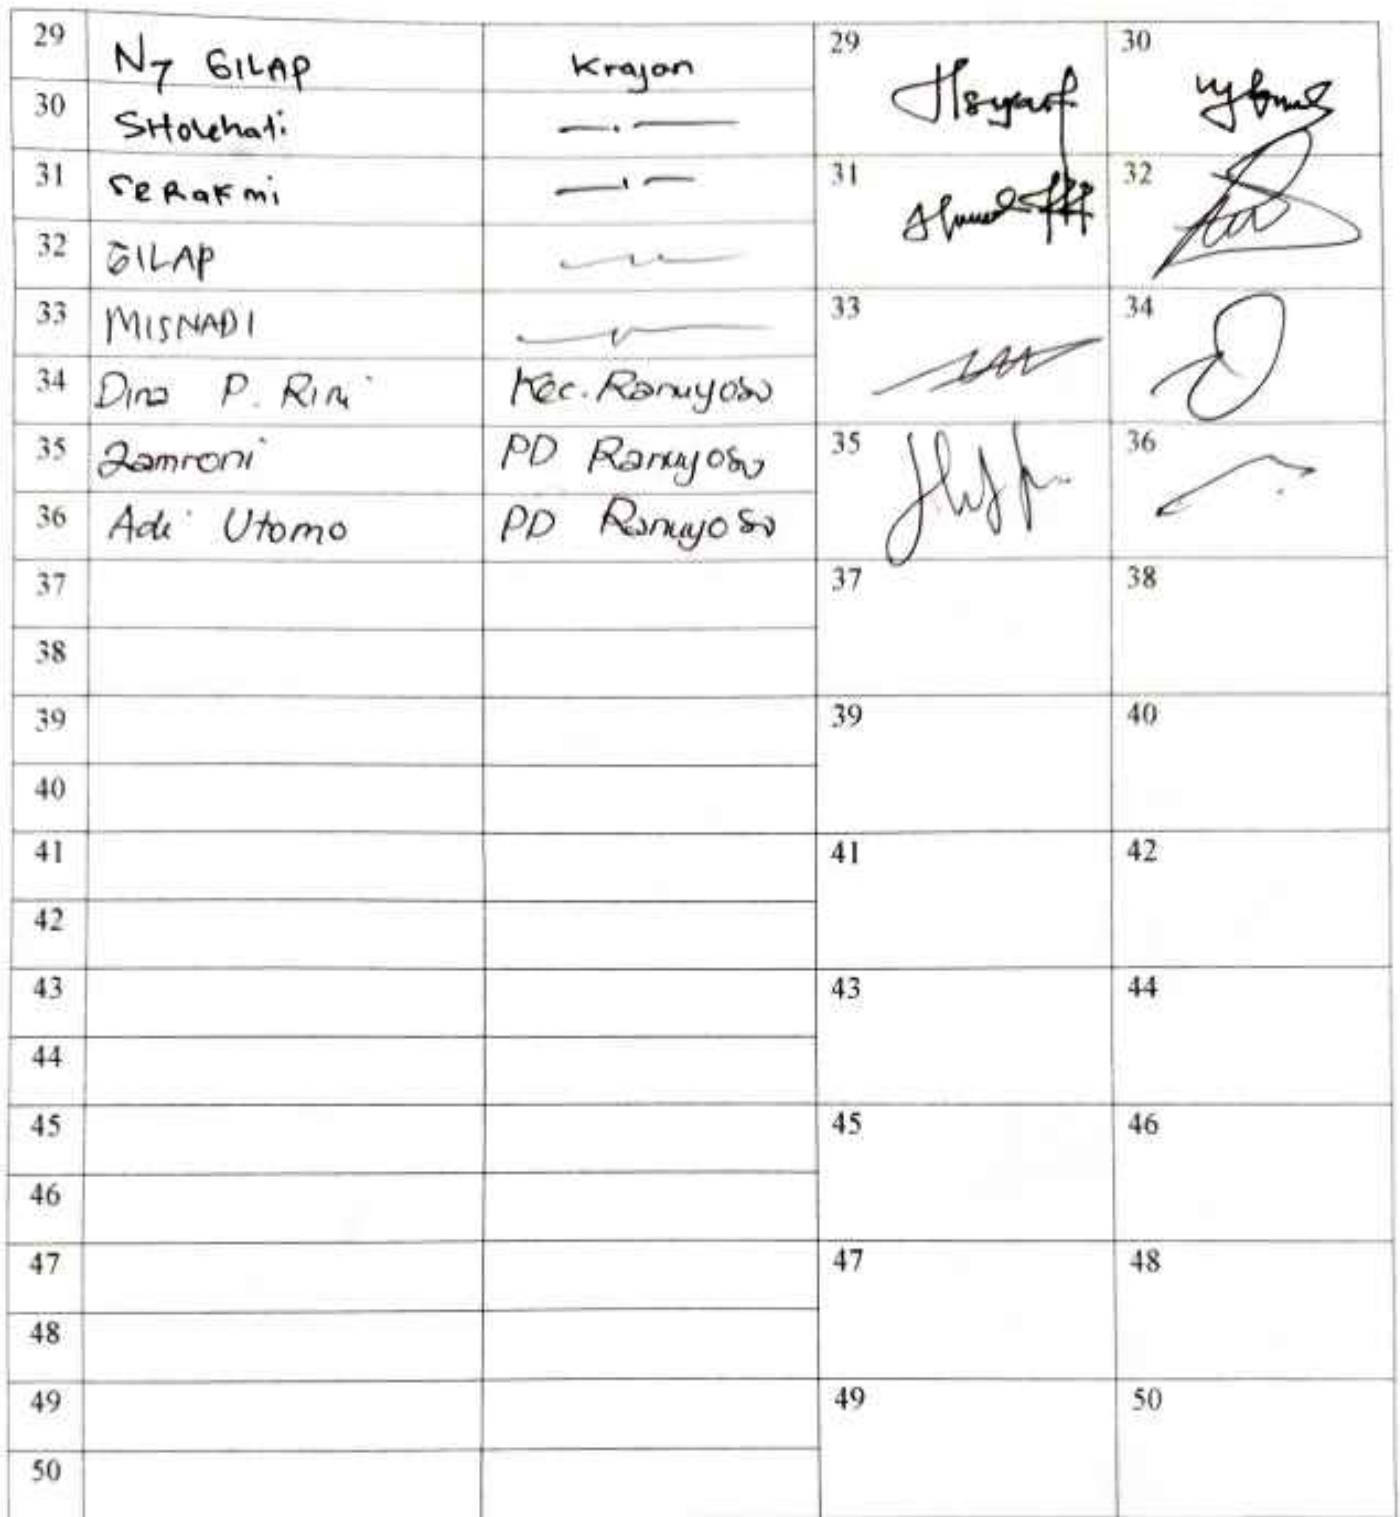 29 Ny GILAP Krajan 29 30
30 SHolehati
31 SeRakmi 31 32
32 GILAP
33 MISNADI 33 34
34 Dina P. Rini Kec. Ranuyoso
35 Zamroni PD Ranuyoso 35 36
36 Adi Utomo PD Ranuyoso
37 37 38
38
39 39 40
40
41 41 42
42
43 43 44
44
45 45 46
46
47 47 48
48
49 49 50
50